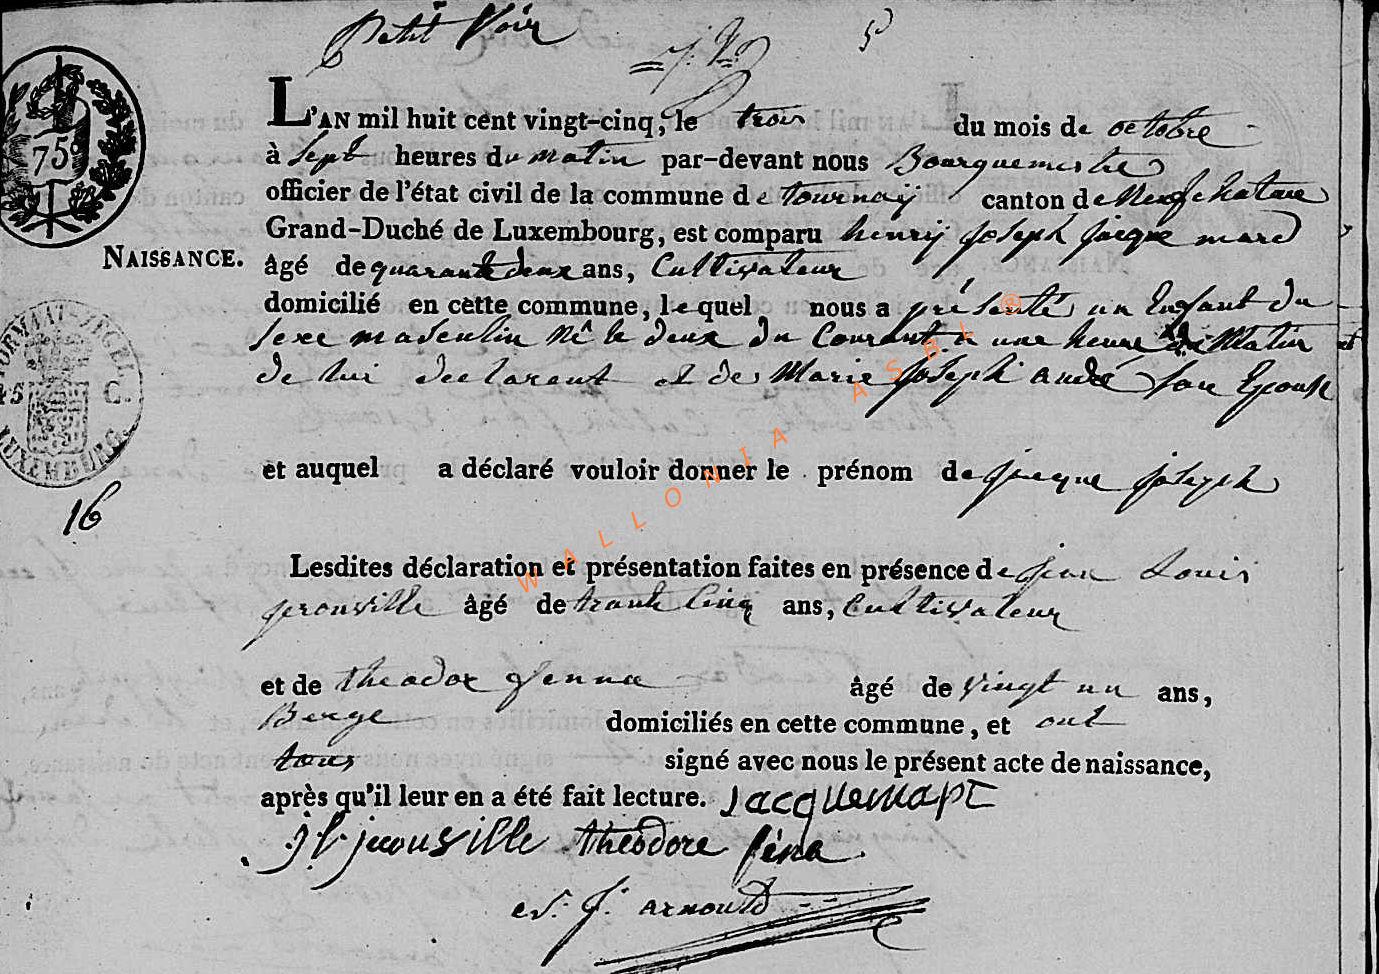 Petit Voir
5
75
L'AN mil huit cent vingt-cinq, le trois du mois de octobre
à Sept heures du matin par-devant nous Bourguemestre
officier de l'état civil de la commune de tournaÿ canton de Neufchateau
Grand-Duché de Luxembourg, est comparu henrÿ joseph jacque mard
NAISSANCE.
âgé de quarante deux ans, Cultivateur
domicilié en cette commune, lequel nous a présenté un Enfant du
Sexe masculin Né le deux du Courant a une heure du Matin
de lui declarent et de Marie joseph andré son Epouse
FORMAAT-ZEGEL
45 C.
LUXEMBURG.
16
et auquel a déclaré vouloir donner le prénom de jacque joseph
Lesdites déclaration et présentation faites en présence de jean Louis
jeronville âgé de trente Cinq ans, Cultivateur
et de theodor jenna âgé de vingt un ans,
Berge domiciliés en cette commune, et ont
tous signé avec nous le présent acte de naissance,
après qu'il leur en a été fait lecture. Jacquemart
j l jeronville theodore jéna
J. arnould
WALLONIA ASBL @